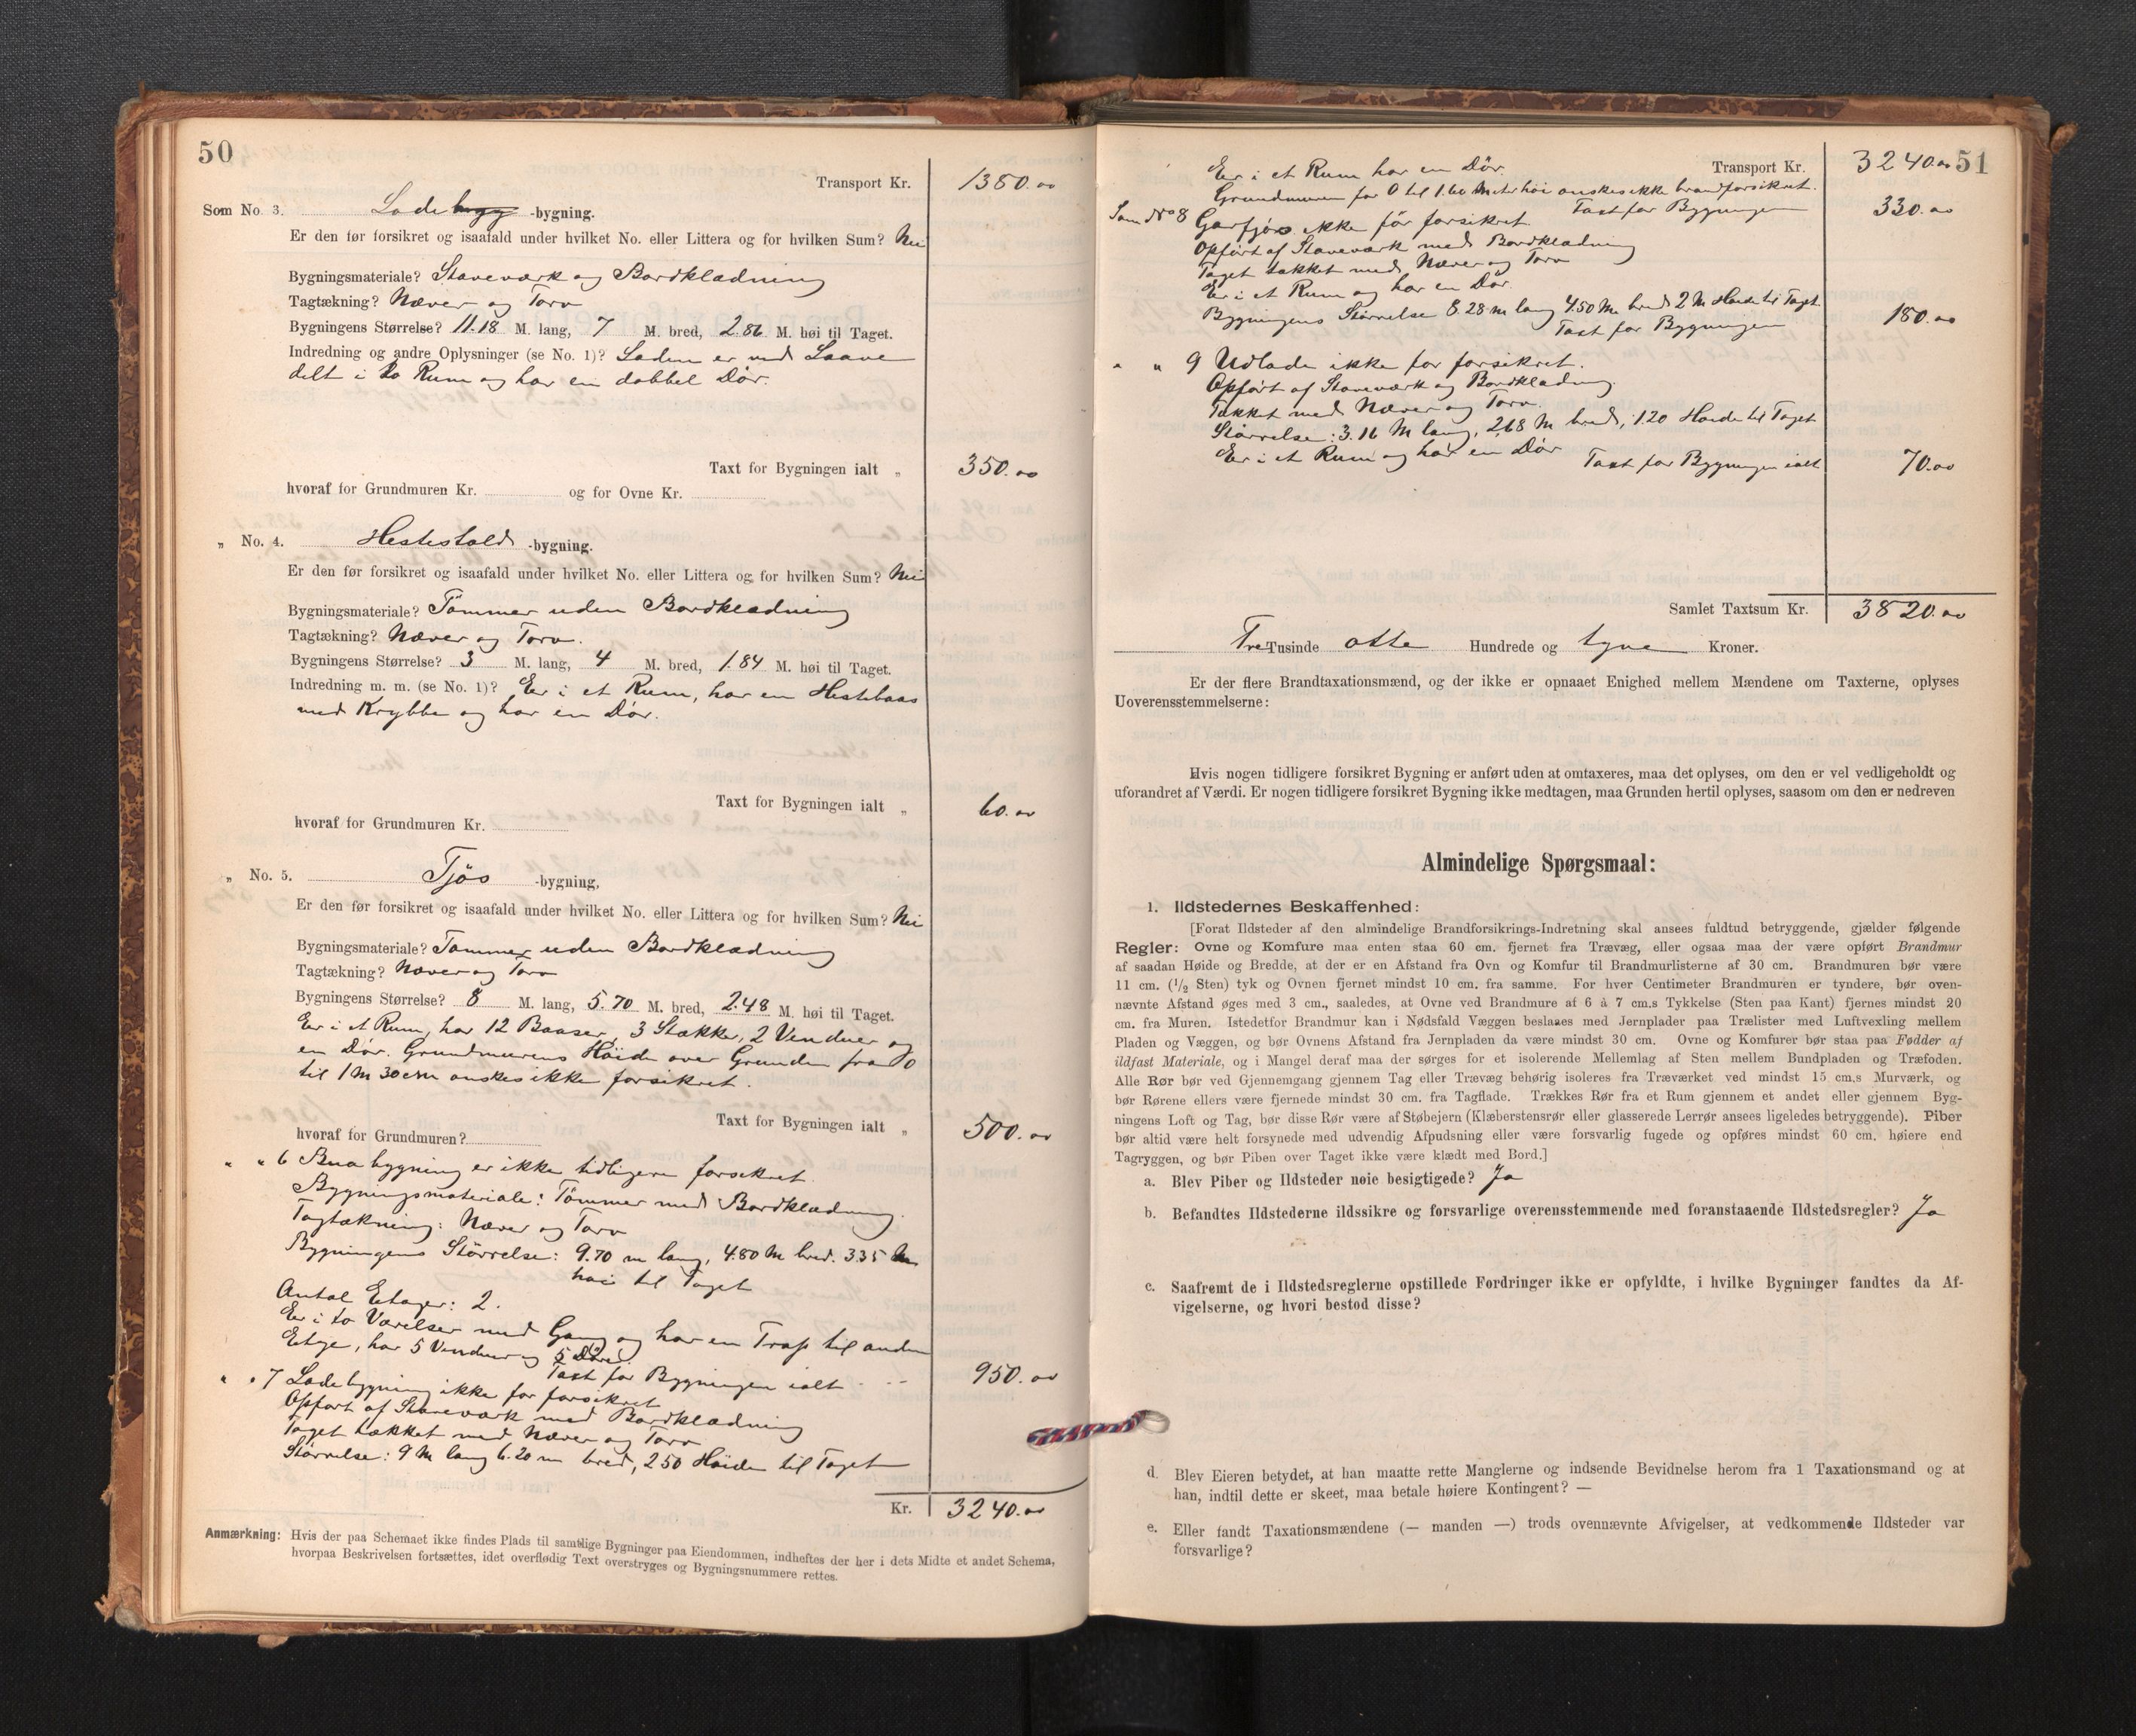 50
Transport Kr. 1380.00
Som No. 3. Lade bygg -bygning.
Er den før forsikret og isaafald under hvilket No. eller Littera og for hvilken Sum? Nei
Bygningsmateriale? Staveværk og Bordklædning
Tagtækning? Næver og Torv
Bygningens Størrelse? 11.18 M. lang, 7 M. bred, 2.86 M. høi til Taget.
Indredning og andre Oplysninger (se No. 1)? Laden er med Laave
delt i to Rum og har en dobbel Dör.
Taxt for Bygningen ialt „ 350.00
hvoraf for Grundmuren Kr. og for Ovne Kr.
„ No. 4. Hestestald -bygning.
Er den før forsikret og isaafald under hvilket No. eller Littera og for hvilken Sum? Nei
Bygningsmateriale? Tömmer uden Bordklædning
Tagtækning? Næver og Torv.
Bygningens Størrelse? 3 M. lang, 4 M. bred, 1.84 M. høi til Taget.
Indredning m. m. (se No. 1)? Er i et Rum, har en Hestebaas
med Krybbe og har en Dör.
Taxt for Bygningen ialt „ 60.00
hvoraf for Grundmuren Kr.
„ No. 5. Fjös -bygning,
Er den før forsikret og isaafald under hvilket No. eller Littera og for hvilken Sum? Nei
Bygningsmateriale? Tömmer uden Bordklædning
Tagtækning? Næver og Torv
Bygningens Størrelse? 8 M. lang, 5.70 M. bred, 2.48 M. høi til Taget.
Er i et Rum, har 12 Baaser, 3 Stækker, 2 Venduer og
en Dör. Grundmurens Höide over Grunden fra 0
til 1 M 30 cm önskes ikke forsikret.
Taxt for Bygningen ialt „ 500.00
hvoraf for Grundmuren?
" " 6 Bua bygning er ikke tidligere forsikret.
Bygningsmateriale: Tömmer med Bordklædning.
Tagtækning: Næver og Torv
Bygningens Störrelse: 9.70 m lang, 4.80 M bred. 3.35 M
höi til Taget
Antal Etager: 2.
Er i to Værelser med Gang og har en Trap til anden
Etage, har 5 Venduer og 5 Döre.
Taxt for Bygningen ialt 950.00
" " 7 Ladebygning ikke för forsikret
Opfört af Staveværk med Bordklædning
Taget tækket med Næver og Torv
Störrelse: 9 M lang 6.20 m bred, 2.50 Höiden til Taget
Kr. 3240.00
Anmærkning: Hvis der paa Schemaet ikke findes Plads til samtlige Bygninger paa Eiendommen, indheftes der her i dets Midte et andet Schema,
hvorpaa Beskrivelsen fortsættes, idet overflødig Text overstryges og Bygningsnummere rettes.
51
Transport Kr. 3240.00
Er i et Rum har en Dör.
Grundmuren for 0 til 1.60 Meter höi önskes ikke brandforsikret.
Taxt for Bygningen 330.00
Som No 8 Garfjös ikke för forsikret.
Opfört af Staveværk med Bordklædning
Taget tækket med Næver og Torv
Er i et Rum og har en Dör.
Bygningens Störrelse 8.28 m lang 4.50 M bred 2 M Höide til Taget
Taxt for Bygningen 180.00
" " 9 Udlade ikke för forsikret.
Opfört af Staveværk og Bordklædning.
Tækket med Næver og Torv.
Störrelse: 3.16 M lang, 2.68 M bred, 1.20 Höide til Taget
Er i et Rum og har en Dör Taxt for Bygningen ialt 70.00
Samlet Taxtsum Kr. 3820.00
Tre Tusinde otte Hundrede og tyve Kroner.
Er der flere Brandtaxationsmænd, og der ikke er opnaaet Enighed mellem Mændene om Taxterne, oplyses
Uoverensstemmelserne:
Hvis nogen tidligere forsikret Bygning er anført uden at omtaxeres, maa det oplyses, om den er vel vedligeholdt og
uforandret af Værdi. Er nogen tidligere forsikret Bygning ikke medtagen, maa Grunden hertil oplyses, saasom om den er nedreven
Almindelige Spørgsmaal:
1. Ildstedernes Beskaffenhed:
[Forat Ildsteder af den almindelige Brandforsikrings-Indretning skal ansees fuldtud betryggende, gjælder følgende
Regler: Ovne og Komfure maa enten staa 60 cm. fjernet fra Trævæg, eller ogsaa maa der være opført Brandmur
af saadan Høide og Bredde, at der er en Afstand fra Ovn og Komfur til Brandmurlisterne af 30 cm. Brandmuren bør være
11 cm. (1/2 Sten) tyk og Ovnen fjernet mindst 10 cm. fra samme. For hver Centimeter Brandmuren er tyndere, bør oven-
nævnte Afstand øges med 3 cm., saaledes, at Ovne ved Brandmure af 6 à 7 cm.s Tykkelse (Sten paa Kant) fjernes mindst 20
cm. fra Muren. Istedetfor Brandmur kan i Nødsfald Væggen beslaaes med Jernplader paa Trælister med Luftvexling mellem
Pladen og Væggen, og bør Ovnens Afstand fra Jernpladen da være mindst 30 cm. Ovne og Komfurer bør staa paa Fødder af
ildfast Materiale, og i Mangel deraf maa der sørges for et isolerende Mellemlag af Sten mellem Bundpladen og Træfoden.
Alle Rør bør ved Gjennemgang gjennem Tag eller Trævæg behørig isoleres fra Træværket ved mindst 15 cm.s Murværk, og
bør Rørene ellers være fjernede mindst 30 cm. fra Tagflade. Trækkes Rør fra et Rum gjennem et andet eller gjennem Byg-
ningens Loft og Tag, bør disse Rør være af Støbejern (Klæberstensrør eller glasserede Lerrør ansees ligeledes betryggende). Piber
bør altid være helt forsynede med udvendig Afpudsning eller være forsvarlig fugede og opføres mindst 60 cm. høiere end
Tagryggen, og bør Piben over Taget ikke være klædt med Bord.]
a. Blev Piber og Ildsteder nøie besigtigede? Ja
b. Befandtes Ildstederne ildssikre og forsvarlige overensstemmende med foranstaaende Ildstedsregler? Ja
c. Saafremt de i Ildstedsreglerne opstillede Fordringer ikke er opfyldte, i hvilke Bygninger fandtes da Af-
vigelserne, og hvori bestod disse?
d. Blev Eieren betydet, at han maatte rette Manglerne og indsende Bevidnelse herom fra 1 Taxationsmand og at
han, indtil dette er skeet, maa betale høiere Kontingent? —
e. Eller fandt Taxationsmændene (— manden —) trods ovennævnte Afvigelser, at vedkommende Ildsteder var
forsvarlige?